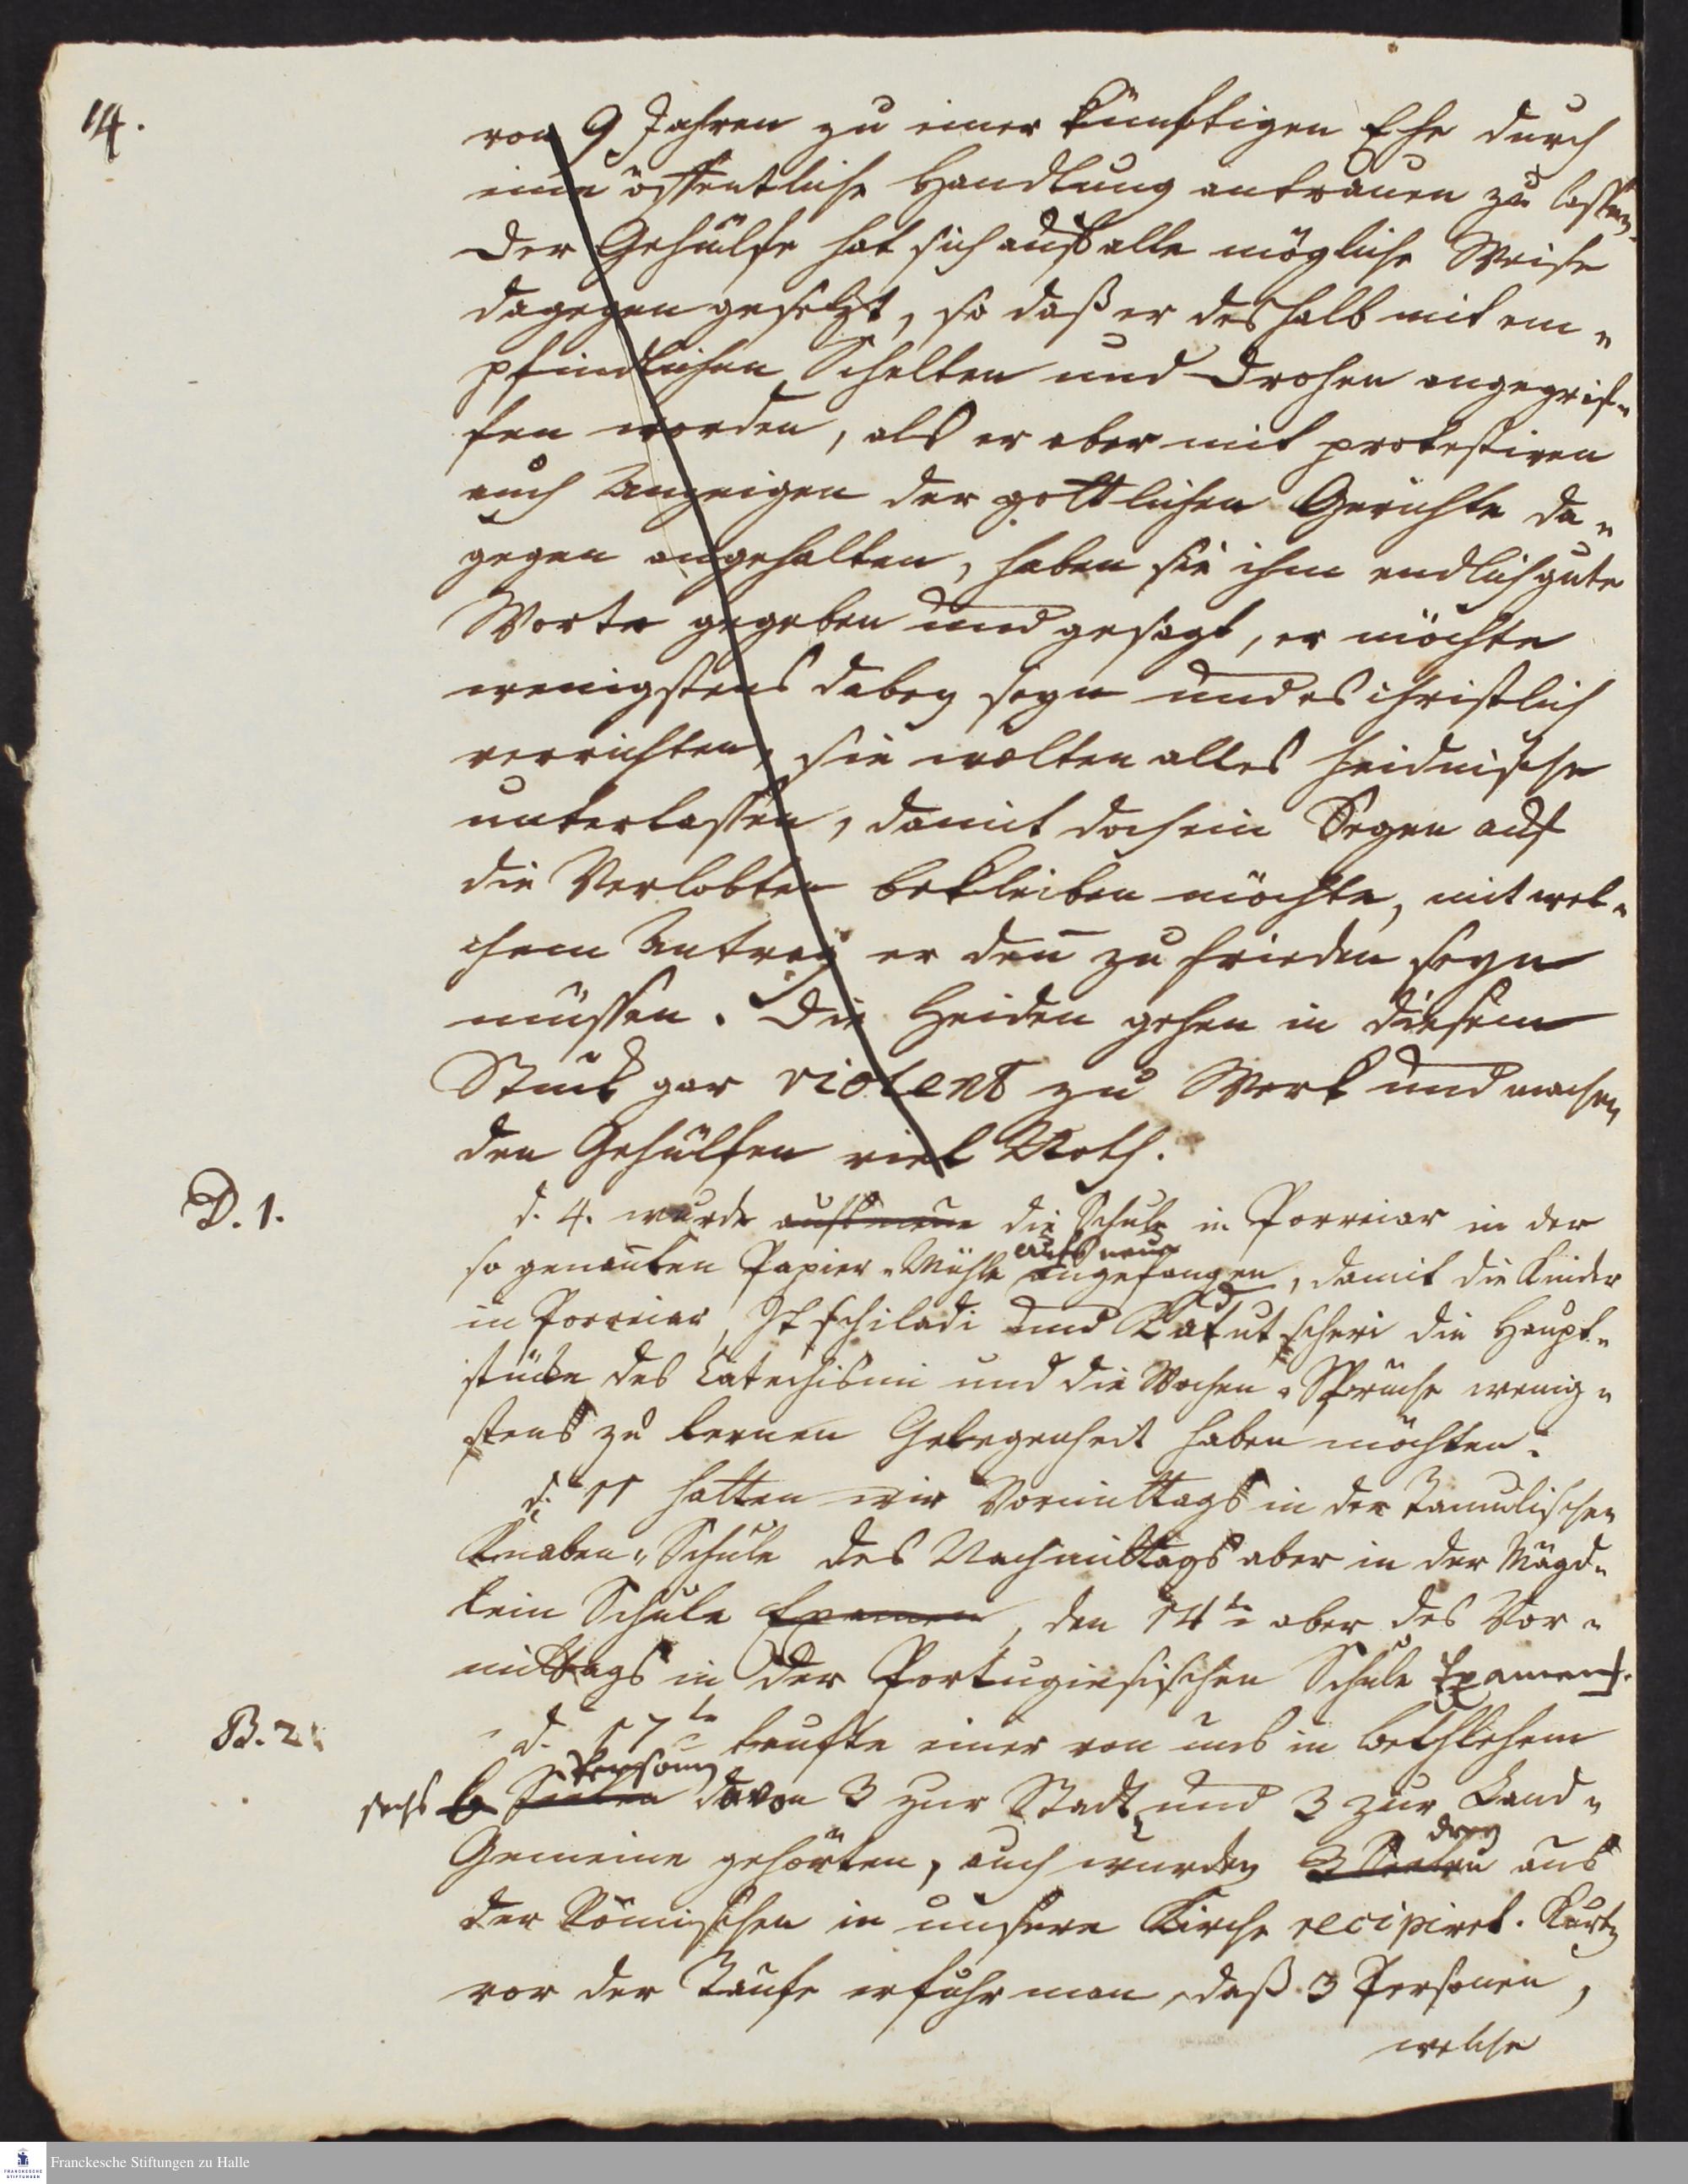 14.
von 9 Jahren zu einer künftigen Ehe durch
eine öffentliche Handlung antrauen zu lassen.
Der Gehülfe hat sich auf alle mögliche Weise
dagegen gesetzt, so daß er deshalb mit em-
pfindlichen Schelten und Drohen angegrif-
fen worden, als er aber mit protestiren
auch Anzeigen der göttlichen Gerichte da-
gegen angehalten, haben sie ihm endlich gute
Worte gegeben und gesagt, er möchte
wenigstens dabey seyn und es christlich
verrichten, sie wolten alles heidnische
unterlassen, damit doch ein Segen auf
die Verlobten bekleiben möchte, mit wel-
chem Antrag er den̄ zu frieden seyn
müssen. Die Heiden gehen in diesem
Stück gar violent zu Werk und machen
den Gehülfen viel Noth.
D. 1.
d. 4. wurde aufs neue die Schule in Porreiar in der
aufs neue
so genan̄ten Papier-Mühle angefangen, damit die Kinder
in Porreiar, Itschiladi und Katutscheri die Haupt-
stücke des Catechismi und die Wochen-Sprüche wenig-
stens zu lernen Gelegenheit haben möchten.
d. 11 hatten wir Vormittags in der Tamulischen
Knaben-Schule des Nachmittags aber in der Mägd-
lein Schule Examen, den 14te aber des Vor-
mittags in der Portugiesischen Schule Examen.
B. 2.
d. 17te taufte einer von uns in Bethlehem
Personen
sechs 6 Seelen davon 3 zur Stadt und 3 zur Land-
drey
Gemeine gehörten, auch wurden 3 Seelen aus
der Römischen in unsere Kirche recipiret. Kurtz
vor der Taufe erfuhr man, daß 3 Personen,
welche
FRANCKESCHE STIFTUNGEN
Franckesche Stiftungen zu Halle